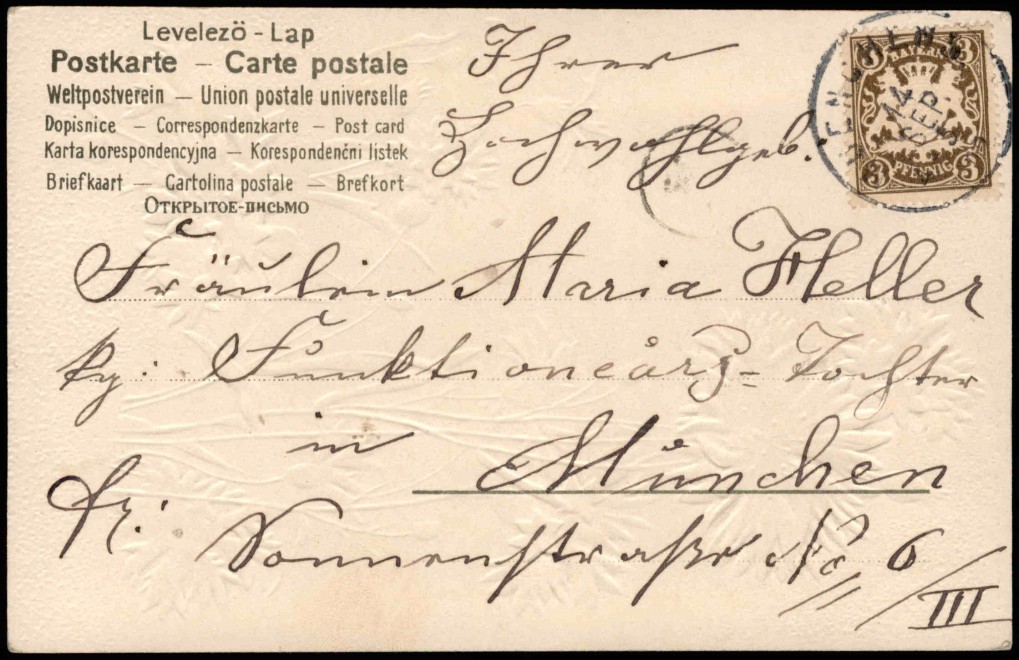 Levelezö - Lap
Postkarte – Carte postale
Weltpostverein — Union postale universelle
Dopisnice – Correspondenzkarte – Post card
Karta korespondencyjna – Korespondenčni listek
Briefkaart — Cartolina postale — Brefkort
Открытое-письмо
Ihrer
Hochwohlgeb.
Fräulein Maria Heller
kg: Funktionärs- Tochter
in
München
fr: Sonnenstraße No 6/III
3 BAYERN 3
3 PFENNIG 3
14 SEP.